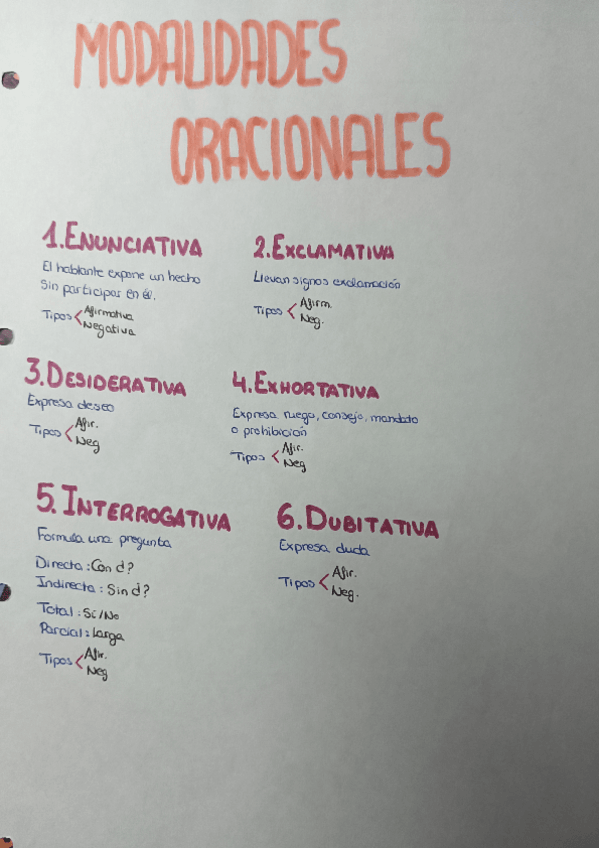 MODALIDADES
ORACIONALES
1.ENUNCIATIVA
El hablante expone un hecho
sin participar en él.
Tipos < Afirmativa
Negativa
2.EXCLAMATIVA
Llevan signos exclamación
Tipos < Afirm.
Neg.
3.DESIDERATIVA
Expresa deseo
Tipos < Afir.
Neg
4.EXHORTATIVA
Expresa ruego, consejo, mandato
o prohibición
Tipos < Afir.
Neg
5.INTERROGATIVA
Formula una pregunta
Directa: Con ¿?
Indirecta: Sin ¿?
Total: Sí/No
Parcial: larga
Tipos < Afir.
Neg
6.DUBITATIVA
Expresa duda
Tipos < Afir.
Neg.